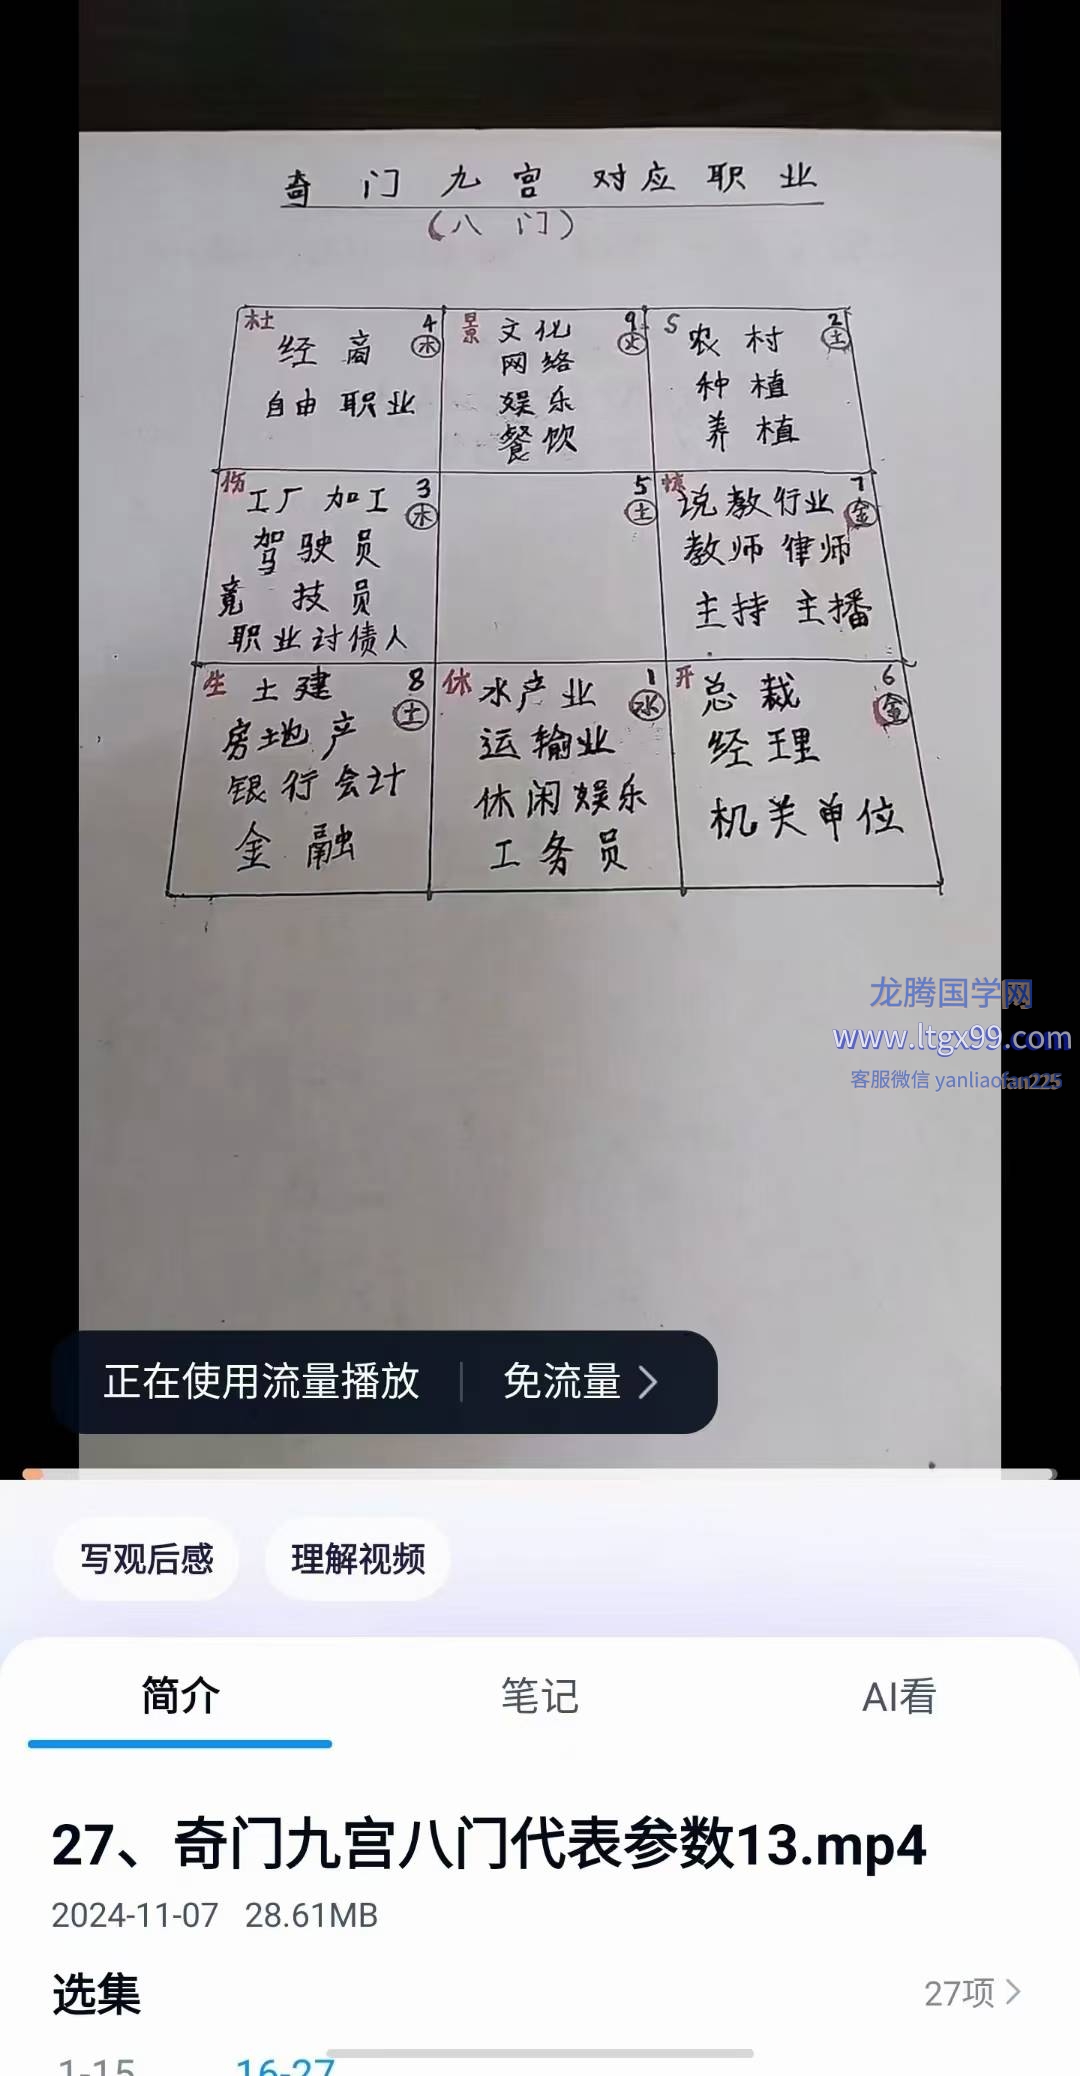 奇门九宫 对应职业
(八门)
杜
4
木
经商
自由职业
景
9
火
文化
网络
娱乐
餐饮
5
2
土
农村
种植
养植
伤
3
木
工厂 加工
驾驶员
竟技员
职业讨债人
5
土
惊
7
金
说教行业
教师 律师
主持 主播
生
8
土
土建
房地产
银行会计
金融
休
1
水
水产业
运输业
休闲娱乐
工务员
开
6
金
总裁
经理
机关单位
龙腾国学网
www.ltgx99.com
客服微信 yanliaofan225
正在使用流量播放 | 免流量 >
写观后感 理解视频
简介 笔记 AI看
27、奇门九宫八门代表参数13.mp4
2024-11-07 28.61MB
选集 27项 >
1-15 16-27